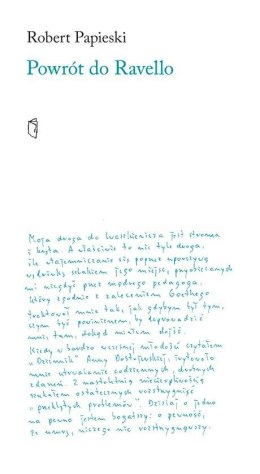 Robert Papieski
Powrót do Ravello
Moja droga do Iwaszkiewicza jest stroma
i kręta. A właściwie to nie tyle droga,
ile wtajemniczanie się, poprzez uporczywą
wędrówkę szlakiem jego miejsc, przyobiecanych
mi niegdyś przez mądrego pedagoga,
który zgodnie z zaleceniem Goethego
traktował mnie tak, jak gdybym był tym,
czym być powinienem, by doprowadzić
mnie tam, dokąd miałem dojść.
Kiedy w bardzo wczesnej młodości czytałem
"Dziennik" Anny Dostojewskiej, irytowało
mnie utrwalanie codziennych, drobnych
zdarzeń. Z nastoletnią niecierpliwością
szukałem ostatecznych rozstrzygnięć
"przeklętych problemów". Dzisiaj o jedno
na pewno jestem bogatszy: o pewność,
że umrę, niczego nie rozstrzygnąwszy.